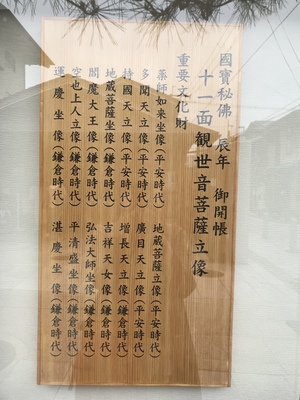 國寳秘佛 辰年 御開帳
十一面觀世音菩薩立像
重要文化財
薬師如来坐像(平安時代) 地蔵菩薩立像(平安時代)
多聞天立像(平安時代) 廣目天立像(平安時代)
持國天立像(平安時代) 增長天立像(鎌倉時代)
地蔵菩薩坐像(鎌倉時代) 吉祥天女像(鎌倉時代)
閻魔大王像(鎌倉時代) 弘法大師坐像(鎌倉時代)
空也上人立像(鎌倉時代) 平清盛坐像(鎌倉時代)
運慶坐像(鎌倉時代) 湛慶坐像(鎌倉時代)